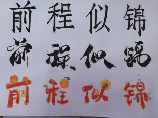 前程似锦
前程似锦
前程似锦